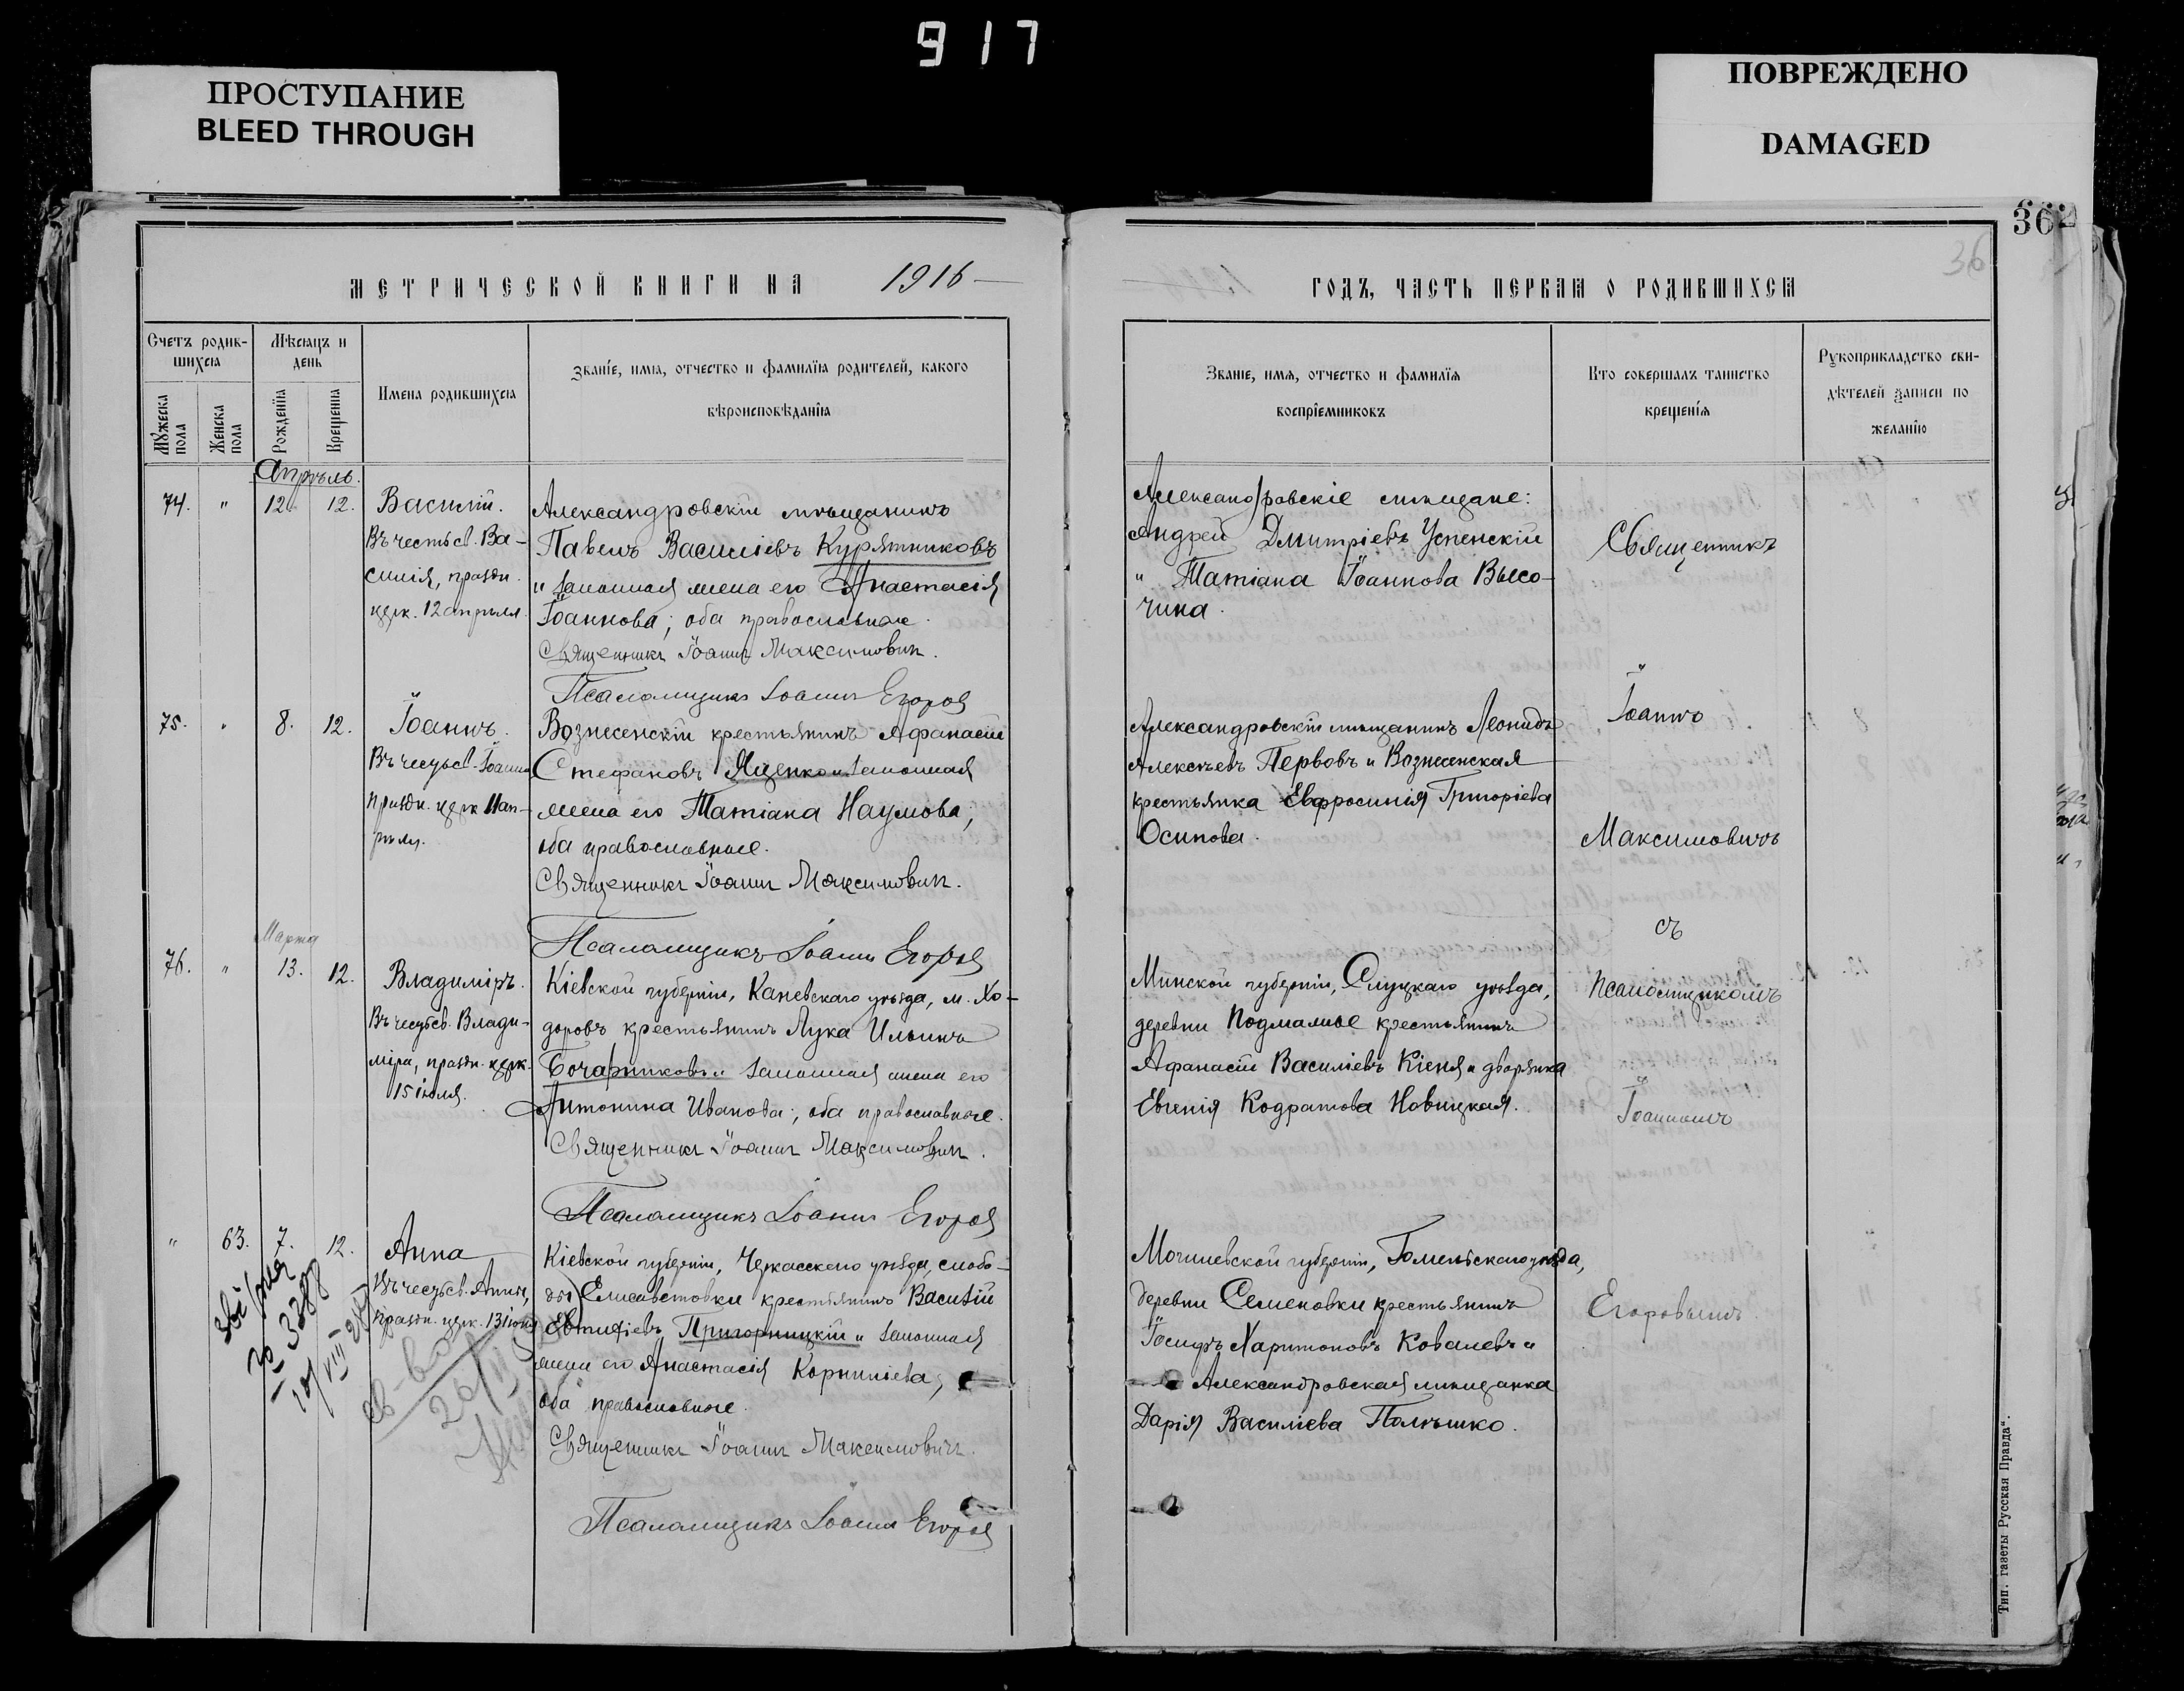 917
ПРОСТУПАНИЕ
BLEED THROUGH
ПОВРЕЖДЕНО
DAMAGED
36
36
МЕТРИЧЕСКОЙ КНИГИ НА 1916
Счетъ родив-
шихся
Мѣсяцъ и
день
Мужеска
пола
Женска
пола
Рожденїя
Крещенїя
Имена родившихся
Званїе, имя, отчество и фамилїя родителей, какого
вѣроисповѣданїя
Апрѣль.
74. " 12. 12. Василій.
Въ честь св. Ва-
силія, праздн.
церк. 12 апрѣля.
Александровскій мѣщанинъ
Павелъ Василіевъ Курятниковъ
и законная жена его Анастасія
Іоаннова; оба православные.
Священникъ Іоаннъ Максимович.
Псаломщикъ Іоаннъ Егоров
75. " 8. 12. Іоаннъ.
Въ честь св. Іоанна
праздн. церк. 11 ап-
рѣля.
Вознесенскій крестьянинъ Афанасій
Стефановъ Яценко и законная
жена его Татіана Наумова;
оба православные.
Священникъ Іоаннъ Максимович.
Псаломщикъ Іоаннъ Егоров
Марта
76. " 13. 12. Владиміръ.
Въ честь св. Влади-
міра, праздн. церк.
15 іюля.
Кіевской губерніи, Каневскаго уѣзда, м. Хо-
доровъ крестьянинъ Лука Ильинъ
Бочарниковъ и законная жена его
Антонина Иванова; оба православные.
Священникъ Іоаннъ Максимович.
Псаломщикъ Іоаннъ Егоров
" 63. 7. 12. Анна
Въ честь св. Анны,
праздн. церк. 13 іюня
№ 3388
10/VIII
св-во
20/II
Кіевской губерніи, Черкасскаго уѣзда, слобо-
ды Елисаветовки крестьянинъ Василій
Евтихіевъ Пригорницкій и законная
жена его Анастасія Корниліева,
оба православные.
Священникъ Іоаннъ Максимович.
Псаломщикъ Іоаннъ Егоров
ГОДЪ, ЧАСТЬ ПЕРВАЯ О РОДИВШИХСЯ
Званїе, имя, отчество и фамилїя
воспрїемниковъ
Кто совершалъ таинство
крещенїя
Рукоприкладство сви-
дѣтелей записи по
желанїю
Александровскіе мѣщане:
Андрей Дмитріевъ Успенскій
и Татіана Іоаннова Высо-
чина.
Александровскій мѣщанинъ Леонидъ
Алексѣевъ Первовъ и Вознесенская
крестьянка Евфросинія Григоріева
Осипова.
Минской губерніи, Слуцкаго уѣзда,
деревни Подмалые крестьянинъ
Афанасій Василіевъ Кіеня и дворянка
Евгенія Кодратова Новицкая.
Могилевской губерніи, Гомельскаго уѣзда,
деревни Семеновки крестьянинъ
Іосифъ Харитоновъ Ковалевъ и
Александровская мѣщанка
Дарія Василіева Полѣшко.
Священникъ
Іоаннъ
Максимовичъ
съ
псаломщикомъ
Іоанномъ
Егоровымъ.
Тип. газеты Русская Правда".